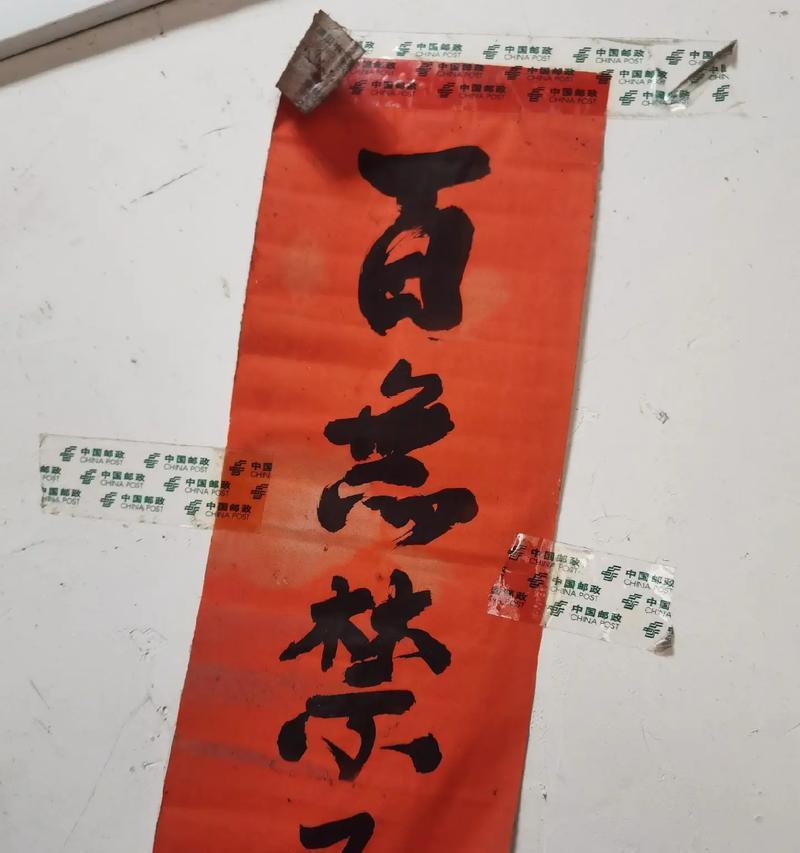 中国邮政 中国邮政 中国邮政
CHINA POST CHINA POST CHINA POST
中国邮政 中国邮政 中国邮政
CHINA POST CHINA POST CHINA POST
中国邮政 中国邮政 中国邮政 中国邮政
CHINA POST CHINA POST CHINA POST CHINA POST
百
無
禁
中国邮政 中国邮政 中国
CHINA POST CHINA POST
邮政 中国邮政 中国邮政
CHINA POST CHINA POST
国邮政 中国邮政 中国邮政
CHINA POST CHINA POST
中国邮政 中国邮政
CHINA POST CHINA POST
中国邮政 中国
CHINA POST
中国邮政
CHINA POST